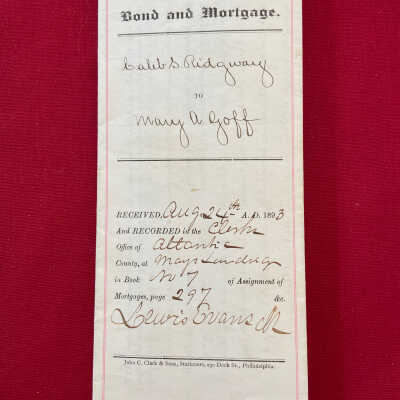 Bond and Mortgage.
Caleb S Ridgway
TO
Mary A Goff
RECEIVED, Aug 24th A. D. 1893
And RECORDED in the Clerks
Office of Atlantic
County, at Mays Landing
in Book No 7 of Assignment of
Mortgages, page 297 &c.
Lewis Evans Clk
John C. Clark & Sons, Stationers, 230 Dock St., Philadelphia.